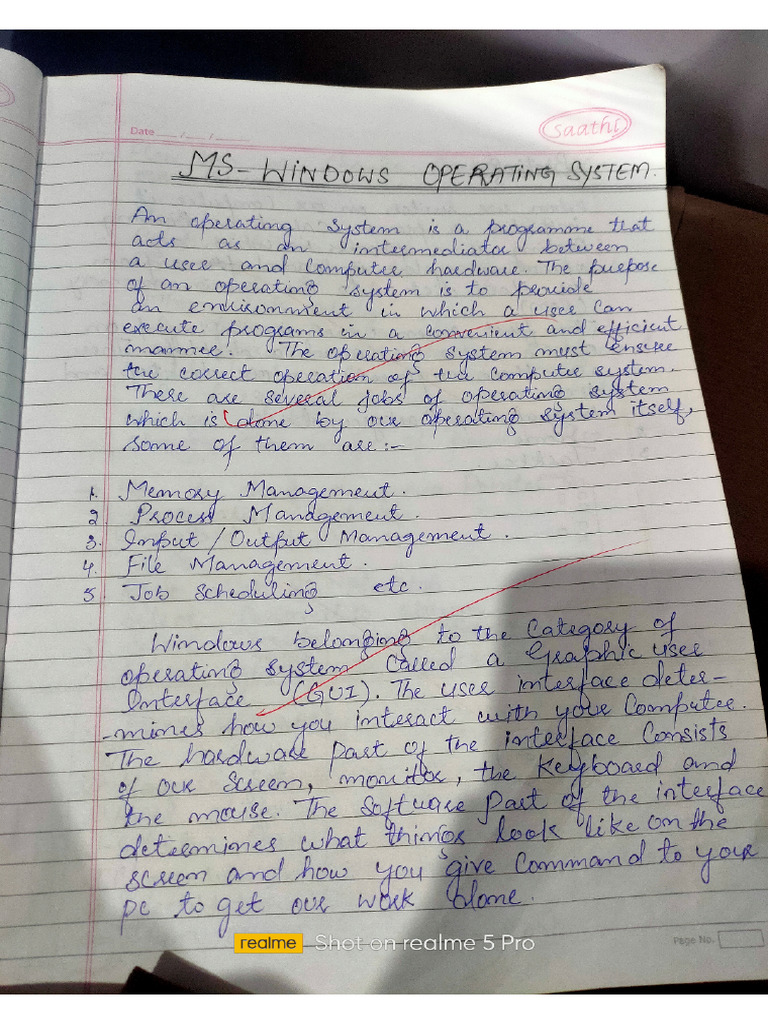 Date
saathi
MS-WINDOWS OPERATING SYSTEM.
An operating system is a programme that
acts as an intermediator between
a user and computer hardware. The purpose
of an operating system is to provide
an environment in which a user can
execute programs in a convenient and efficient
manner. The operating system must ensure
the correct operation of the computer system.
There are several jobs of operating system
which is done by our operating system itself,
some of them are:-
1. Memory Management.
2 Process Management.
3. Input/Output Management.
4. File Management.
5 Job Scheduling etc.
Windows belonging to the Category of
operating system called a Graphic user
Interface (GUI). The user interface deter-
-mines how you interact with your Computer.
The hardware part of the interface Consists
of our screen, monitor, the keyboard and
the mouse. The software part of the interface
determines what things look like on the
screen and how you give Command to your
pc to get our work done.
realme Shot on realme 5 Pro
Page No.